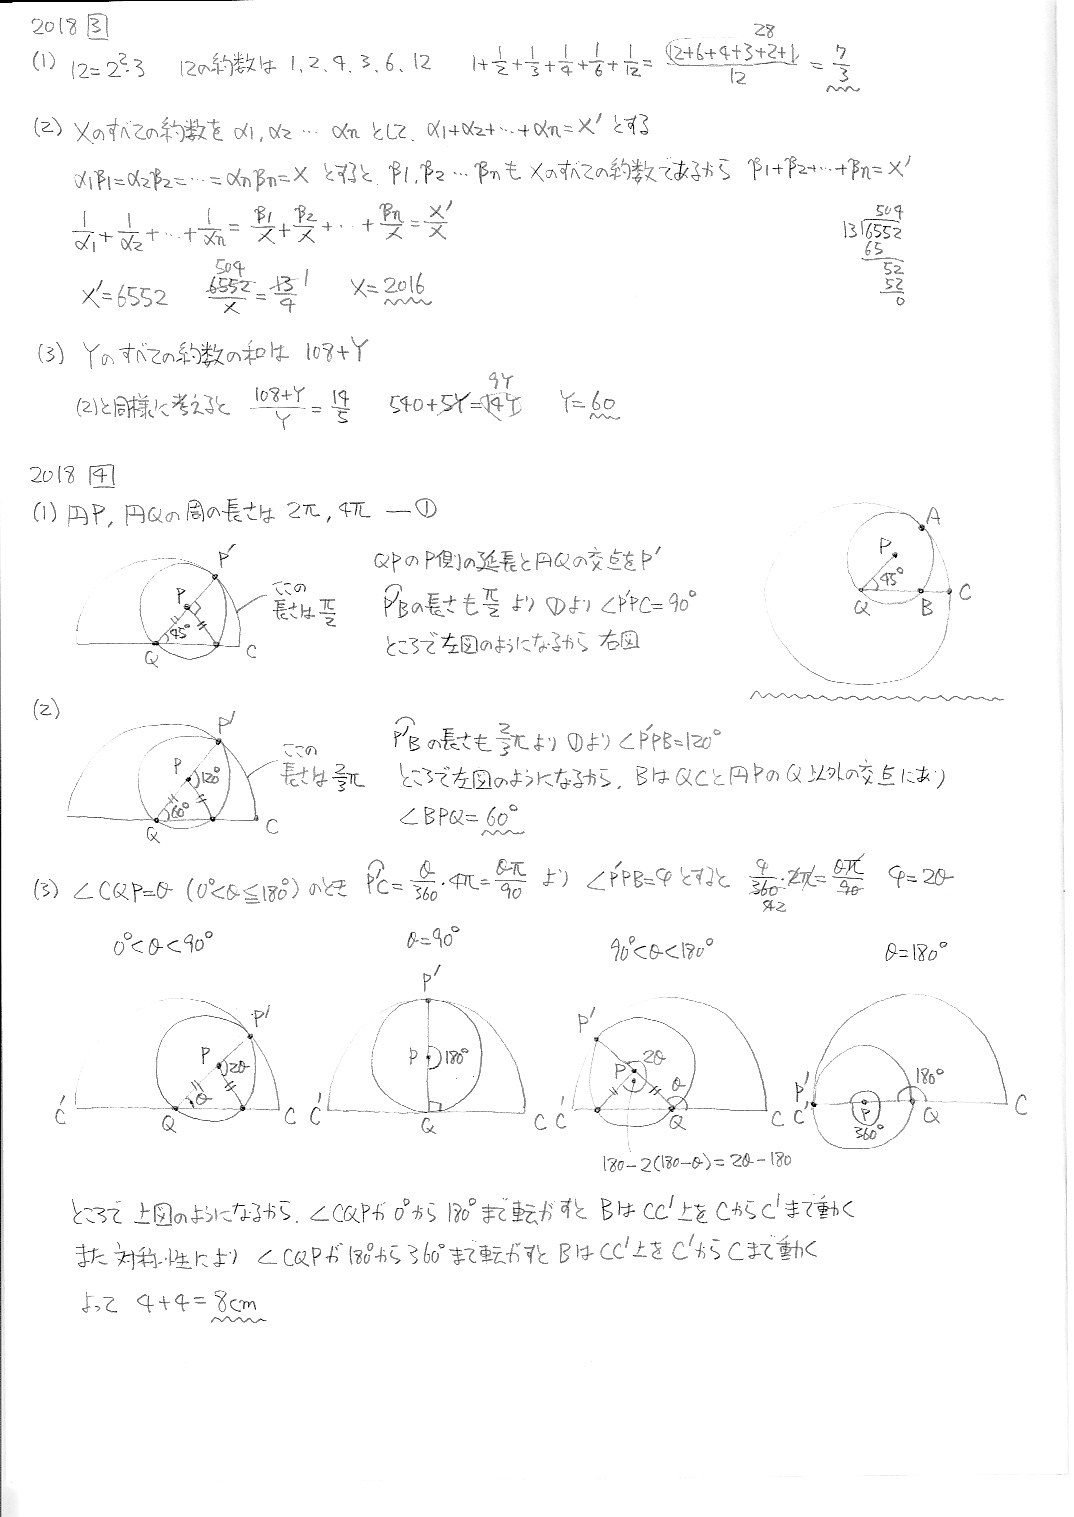 2018 3
(1) 12=2²·3 12の約数は 1, 2, 4, 3, 6, 12 1+1/2+1/3+1/4+1/6+1/12=(12+6+4+3+2+1)/12=7/3
28
(2) Xのすべての約数を α1, α2 … αn として, α1+α2+…+αn=X' とする
α1β1=α2β2=…=αnβn=X とすると, β1, β2 … βn も Xのすべての約数であるから β1+β2+…+βn=X'
1/α1+1/α2+…+1/αn=β1/X+β2/X+…+βn/X=X'/X
504
13)6552
65
52
52
0
504 1
X'=6552 6552/X=13/4 X=2016
(3) Yのすべての約数の和は 108+Y
9Y
(2)と同様に考えると (108+Y)/Y=14/5 540+5Y=14Y Y=60
2018 4
(1) 円P, 円Qの周の長さは 2π, 4π ―①
P' P 45° Q C
ここの
長さは π/2
QPのP側の延長と円Qの交点をP'
P'Bの長さも π/2 より ①より ∠P'PC=90°
ところで左図のようになるから 右図
A P 45° Q B C
(2)
P' P 120° 60° Q C
ここの
長さは 2/3π
P'Bの長さも 2/3π より ①より ∠P'PB=120°
ところで左図のようになるから, BはQCと円PのQ以外の交点にあり
∠BPQ=60°
(3) ∠CQP=θ (0°<θ≦180°) のとき P'C=θ/360·4π=θπ/90 より ∠P'PB=φ とすると φ/360·2π=θπ/90 φ=2θ
0°<θ<90° θ=90° 90°<θ<180° θ=180°
P' P 2θ θ C' Q C
P' P 180° C' Q C
P' P 2θ θ C' Q C
180-2(180-θ)=2θ-180
P' C' P 360° 180° Q C
ところで 上図のようになるから, ∠CQPが 0°から 180°まで転がすと BはCC'上をCからC'まで動く
また 対称性により ∠CQPが180°から360°まで転がすと BはCC'上をC'からCまで動く
よって 4+4=8cm